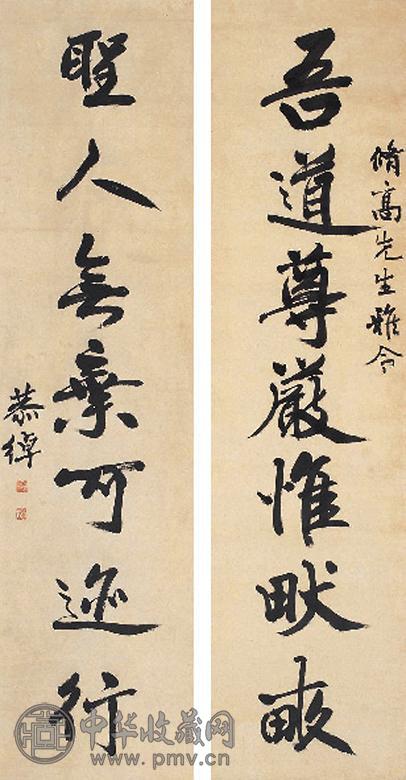 脩高先生雅令
吾道尊嚴惟畎畝
聖人無棄可迹行
恭綽
中华收藏网
www.pmv.cn